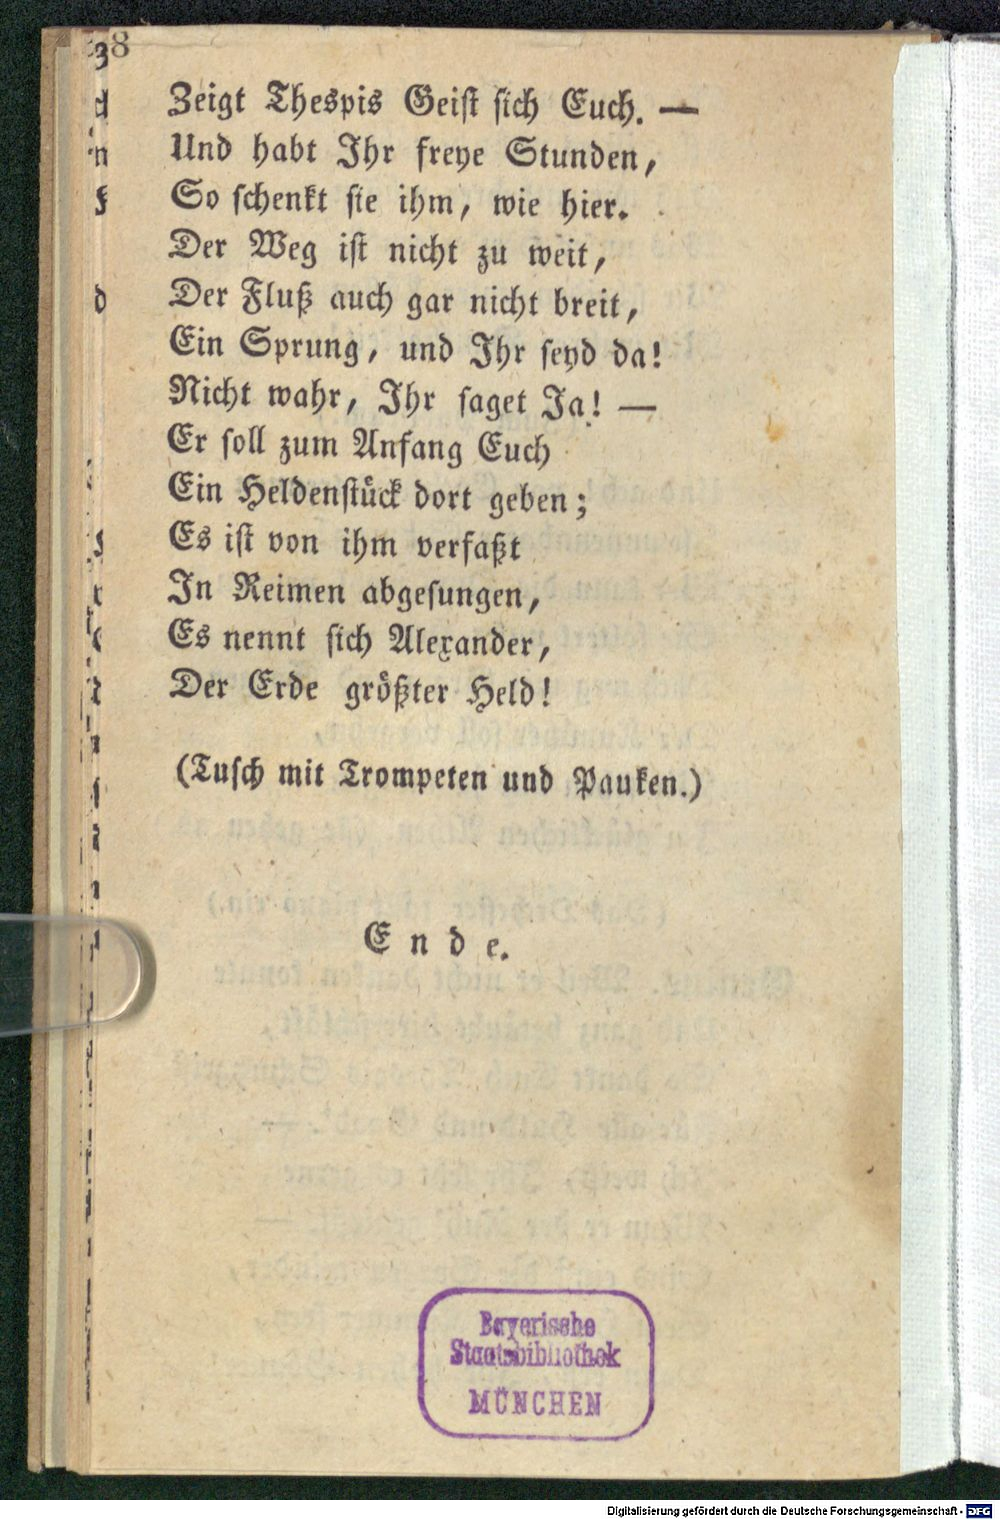 8
Zeigt Thespis Geist sich Euch. —
Und habt Ihr freye Stunden,
So schenkt sie ihm, wie hier.
Der Weg ist nicht zu weit,
Der Fluß auch gar nicht breit,
Ein Sprung, und Ihr seyd da!
Nicht wahr, Ihr saget Ja! —
Er soll zum Anfang Euch
Ein Heldenstück dort geben;
Es ist von ihm verfaßt
In Reimen abgesungen,
Es nennt sich Alexander,
Der Erde größter Held!
(Tusch mit Trompeten und Pauken.)
Ende.
Bayerische
Staatsbibliothek
MÜNCHEN
Digitalisierung gefördert durch die Deutsche Forschungsgemeinschaft - DFG